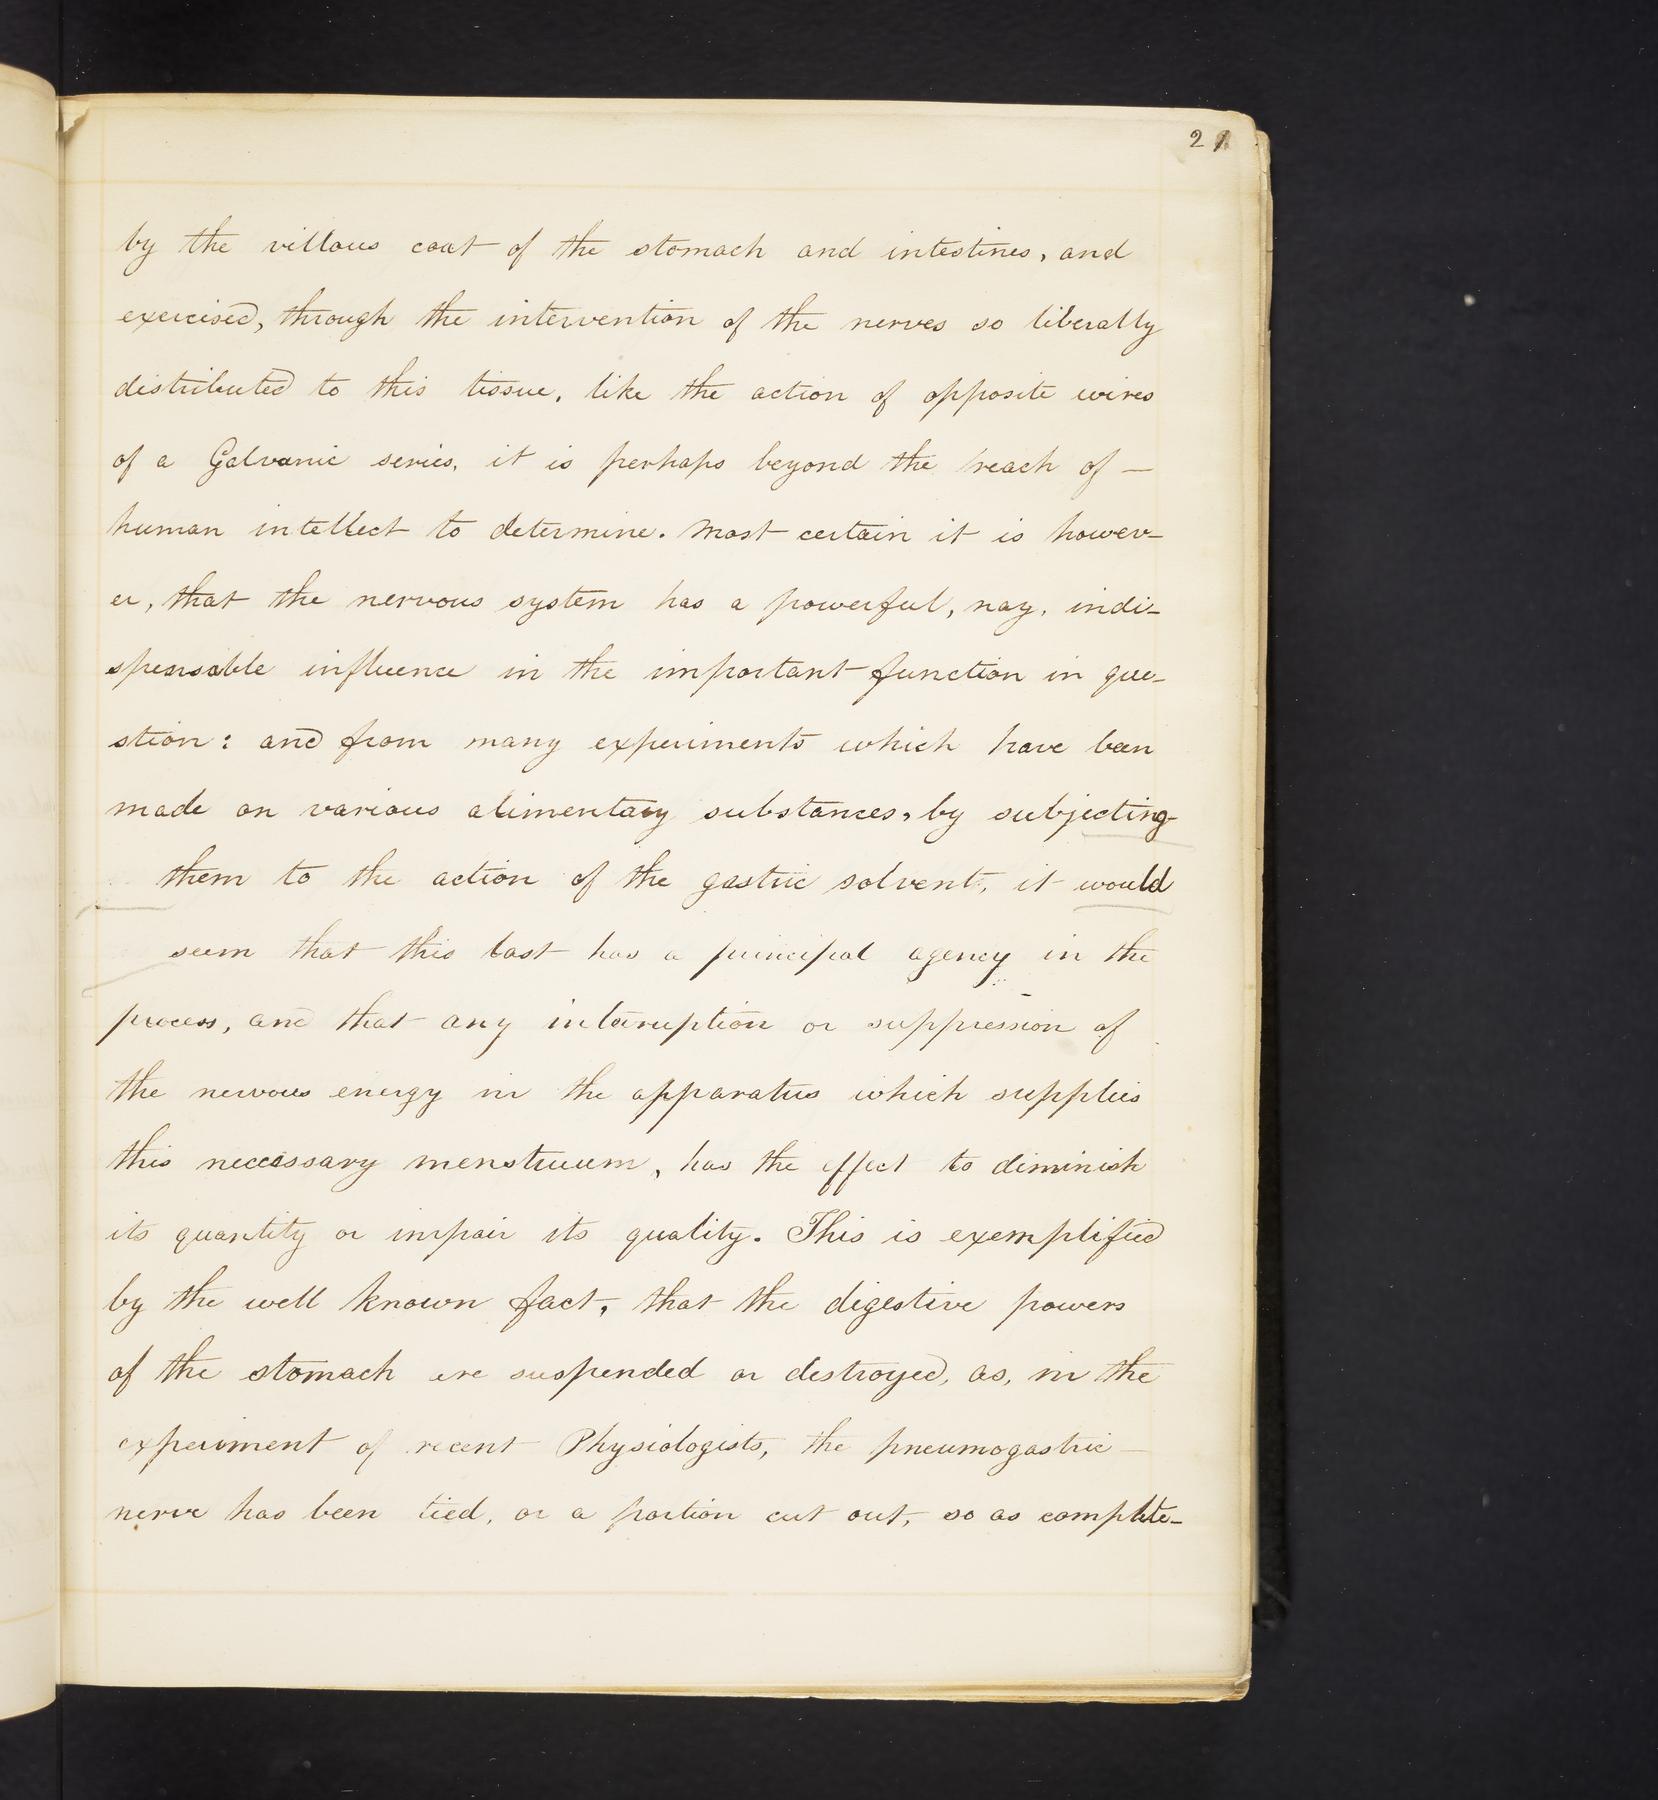 21
by the villous coat of the stomach and intestines, and
exercised, through the intervention of the nerves so liberally
distributed to this tissue, like the action of opposite wires
of a Galvanic series, it is perhaps beyond the reach of —
human intellect to determine. Most certain it is howev-
er, that the nervous system has a powerful, nay, indi-
spensable influence in the important function in que-
stion: and from many experiments which have been
made on various alimentary substances, by subjecting
them to the action of the gastric solvent, it would
seem that this last has a principal agency in the
process, and that any interruption or suppression of
the nervous energy in the apparatus which supplies
this necessary menstruum, has the effect to diminish
its quantity or impair its quality. This is exemplified
by the well known fact, that the digestive powers
of the stomach are suspended or destroyed, as, in the
experiment of recent Physiologists, the pneumogastric —
nerve has been tied, or a portion cut out, so as complete-